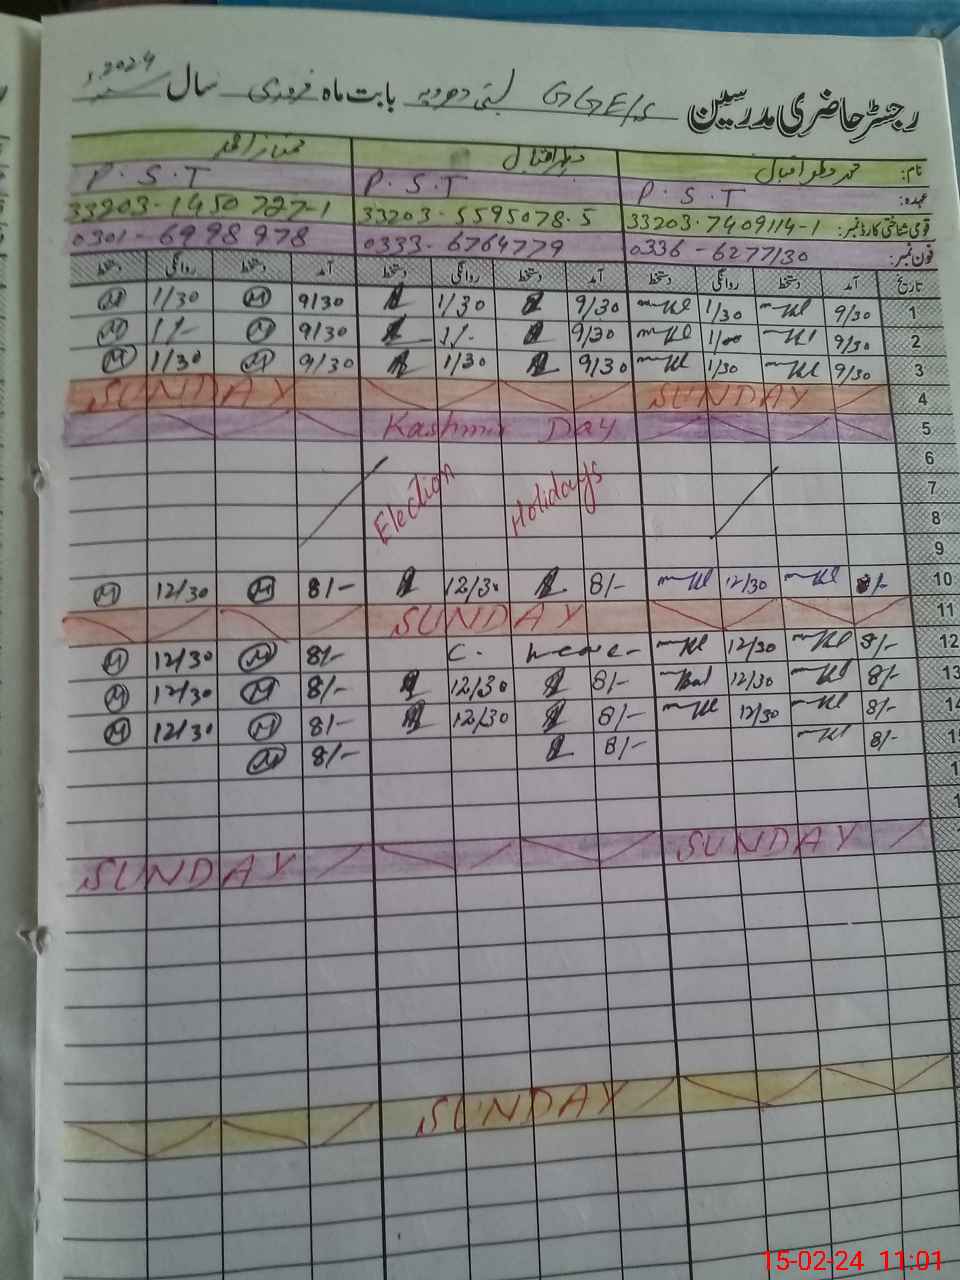 رجسٹر حاضری مدرسین GGE/S بستی دھودیہ بابت ماہ فروری سال 2024ء
نام: محمد مظہر اقبال اقبال ممتاز احمد
عہدہ: P.S.T P.S.T P.S.T
قومی شناختی کارڈ نمبر: 33203-7409114-1 33203-5595078-5 33203-1450727-1
فون نمبر: 0336-6277130 0333-6764779 0301-6998978
تاریخ آمد دستخط روانگی دستخط آمد دستخط روانگی دستخط آمد دستخط روانگی دستخط
1 9/30 1/30 9/30 1/30 9/30 M 1/30 M
2 9/30 1/00 9/30 1/- 9/30 M 1/- M
3 9/30 1/30 9/30 1/30 9/30 M 1/30 M
4 SUNDAY SUNDAY
5 Kashmir Day
6
7 Election Holidays
8
9
10 8/- 12/30 8/- 12/30 8/- M 12/30 M
11 SUNDAY
12 8/- 12/30 C. leave 8/- M 12/30 M
13 8/- 12/30 8/- 12/30 8/- M 12/30 M
14 8/- 12/30 8/- 12/30 8/- M 12/30 M
15 8/- 8/- 8/- M
SUNDAY SUNDAY
SUNDAY
15-02-24 11:01